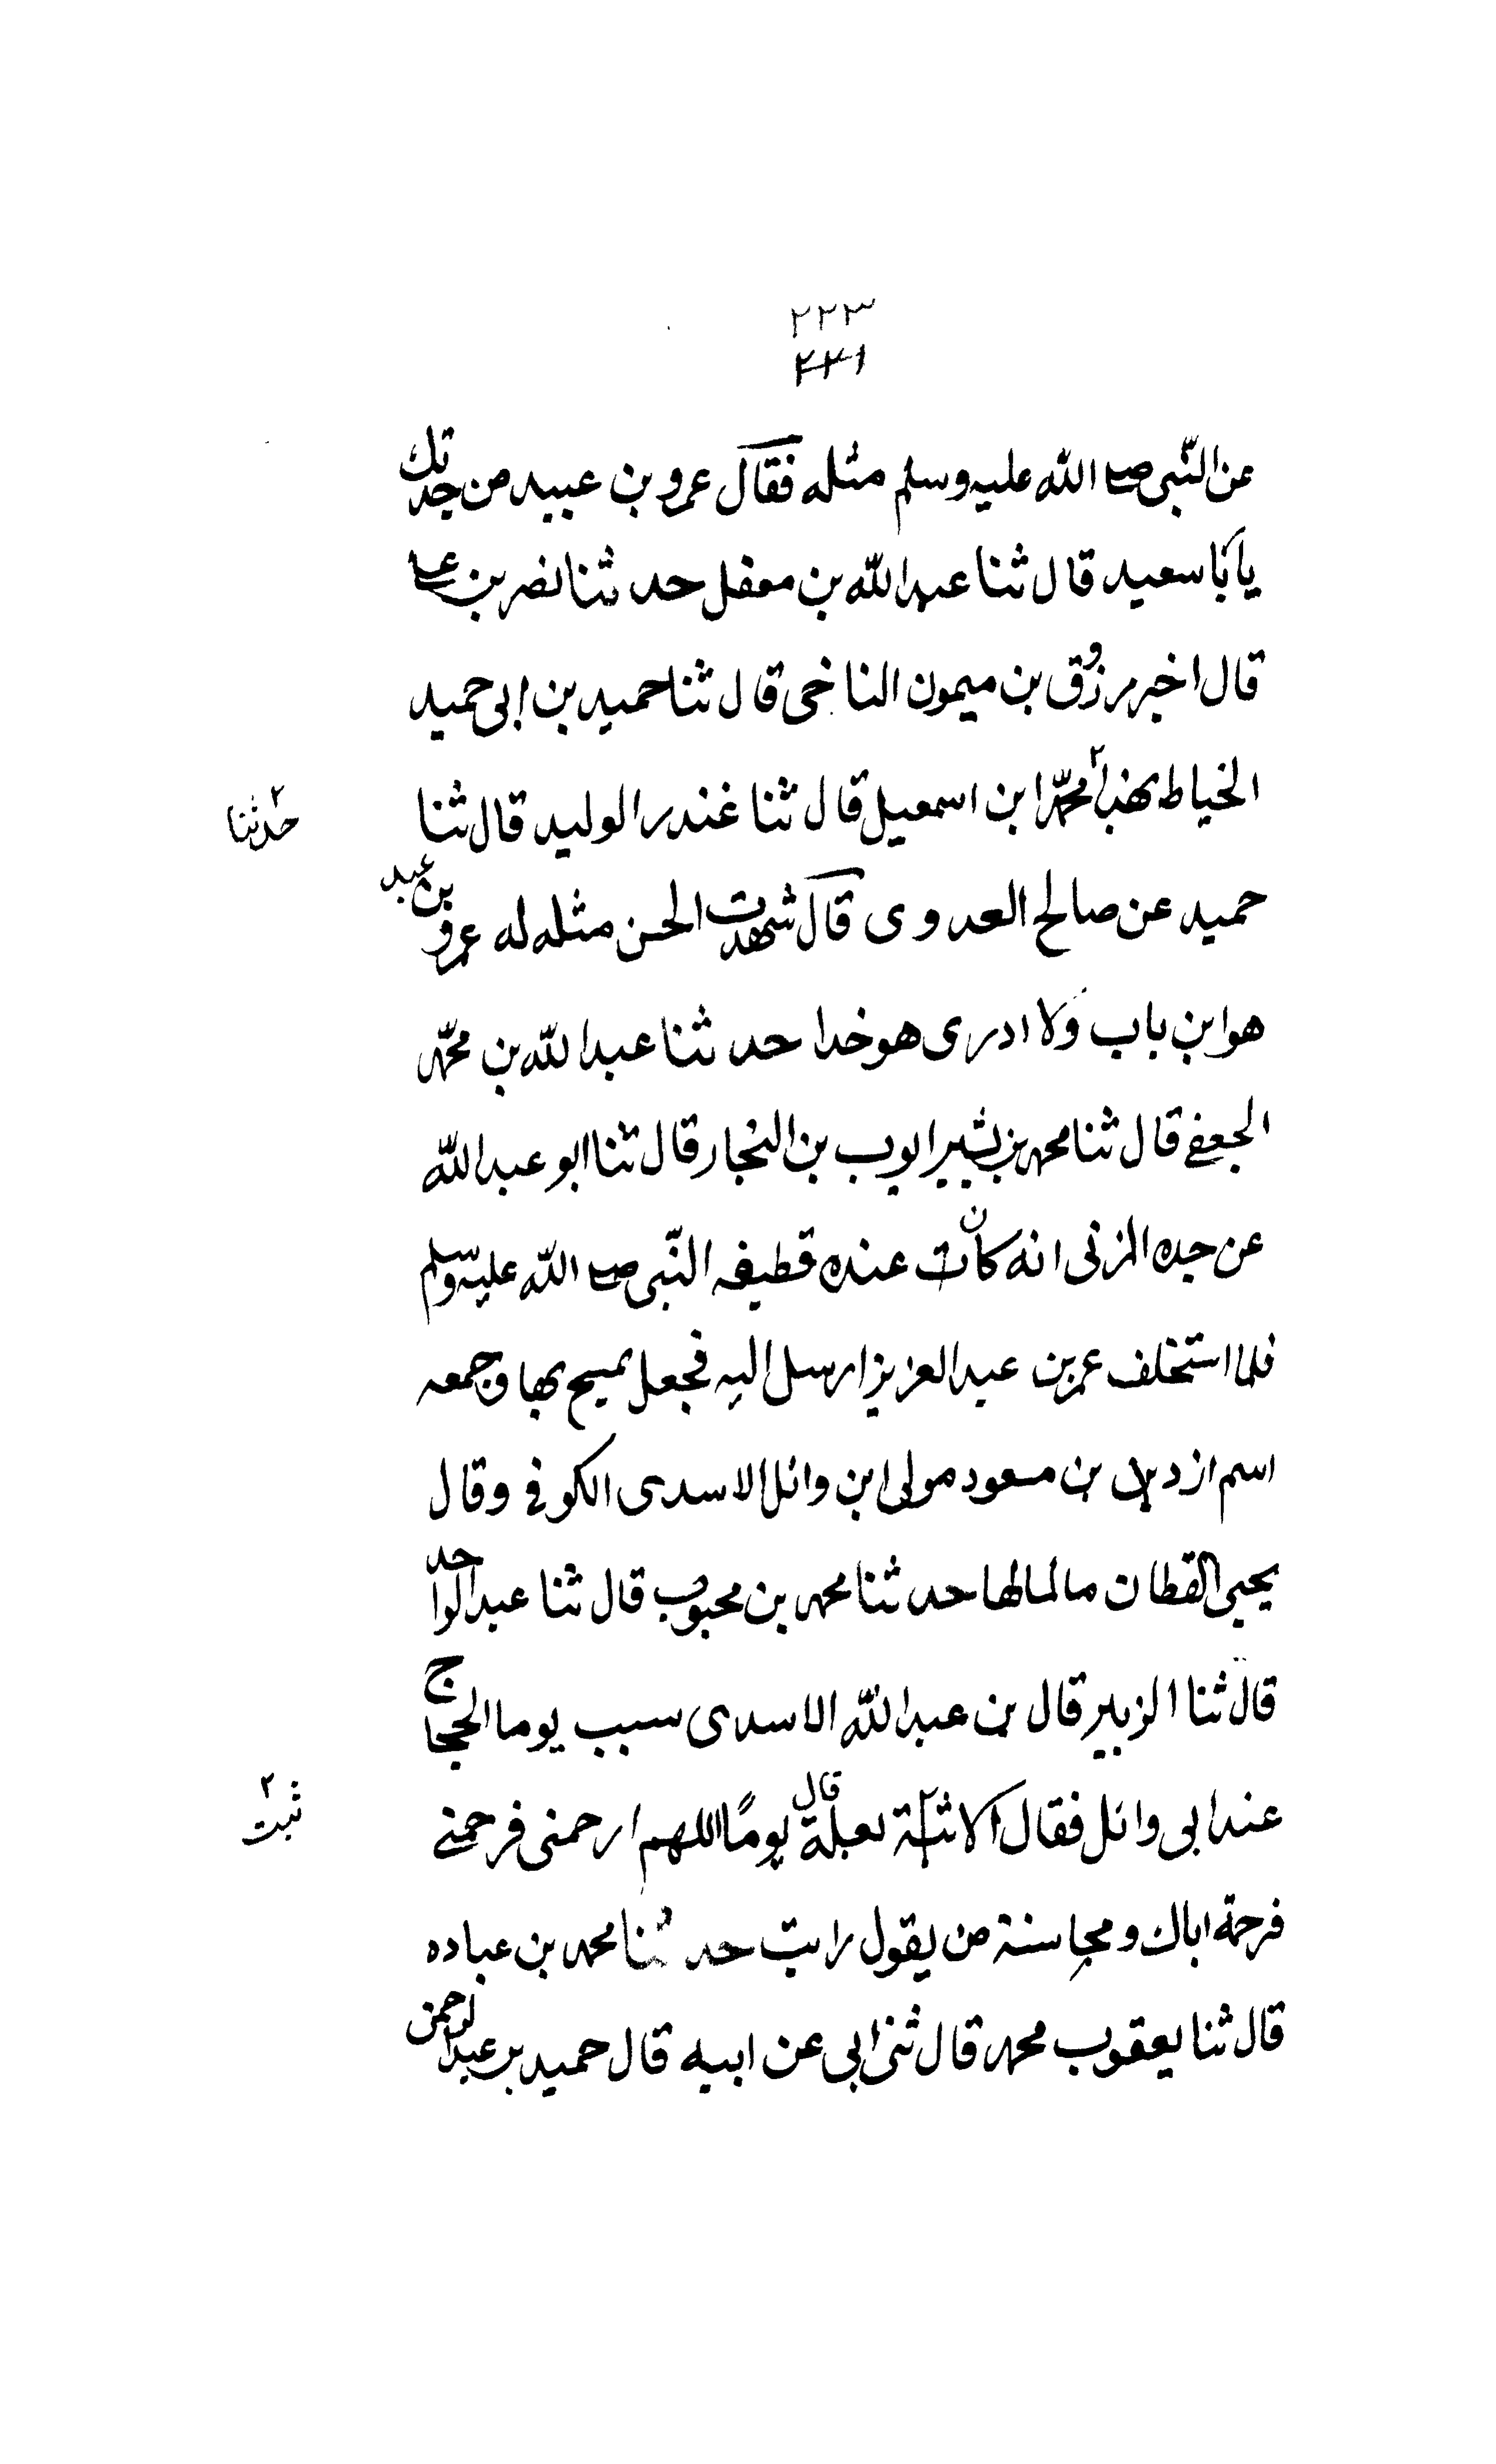 ٢٢٣
٢٢١
عن النّبى صلى الله عليه وسلم مثله فقال عمرو بن عبيد من حدثك
يا أبا سعيد قال ثنا عبد الله بن مغفل حدثنا نضر بن على
قال اخبر مرزُق بن ميمون الناخى قال ثنا حميد بن ابى حميد
الخياط بهذا ٢ محمّد ابن اسمعيل قال ثنا غندر الوليد قال ثنا
٢ حدثنا
حميد عن صالح العدوى قال شهدت الحسن مثله له عمرو بن عبيد
هو ابن باب ولا ادرى هو خدا حدثنا عبد الله بن محمّد
الجعفى قال ثنا محمد بن بشير ايوب بن النجار قال ثنا ابو عبد الله
عن جده المزنى انه كانت عنده قطيفه النّبى صلى الله عليه وسلم
فلما استخلف عمر بن عبد العزيز ارسل اليه فجعل يميح بها وجمعه
اسم ازد بن مسعود مولى ابن وائل الاسدى الكوفى وقال
يحيى القطان مالمالها حدثنا محمد بن محبوب قال ثنا عبد الواحد
قال ثنا الزبير قال بن عبد الله الاسدى سبب يوما الحجاج
عند ابى وائل فقال الا ٢ لعبلة قال يومًا اللهم ارحمنى فرحمنى
٢ ثبت
فرحمة اباك ومجاسنة من يقول رايت حدثنا محمد بن عباده
قال ثنا يعقوب محمد قال ثنى ابى عن ابيه قال حميد بن عبد الرحمن